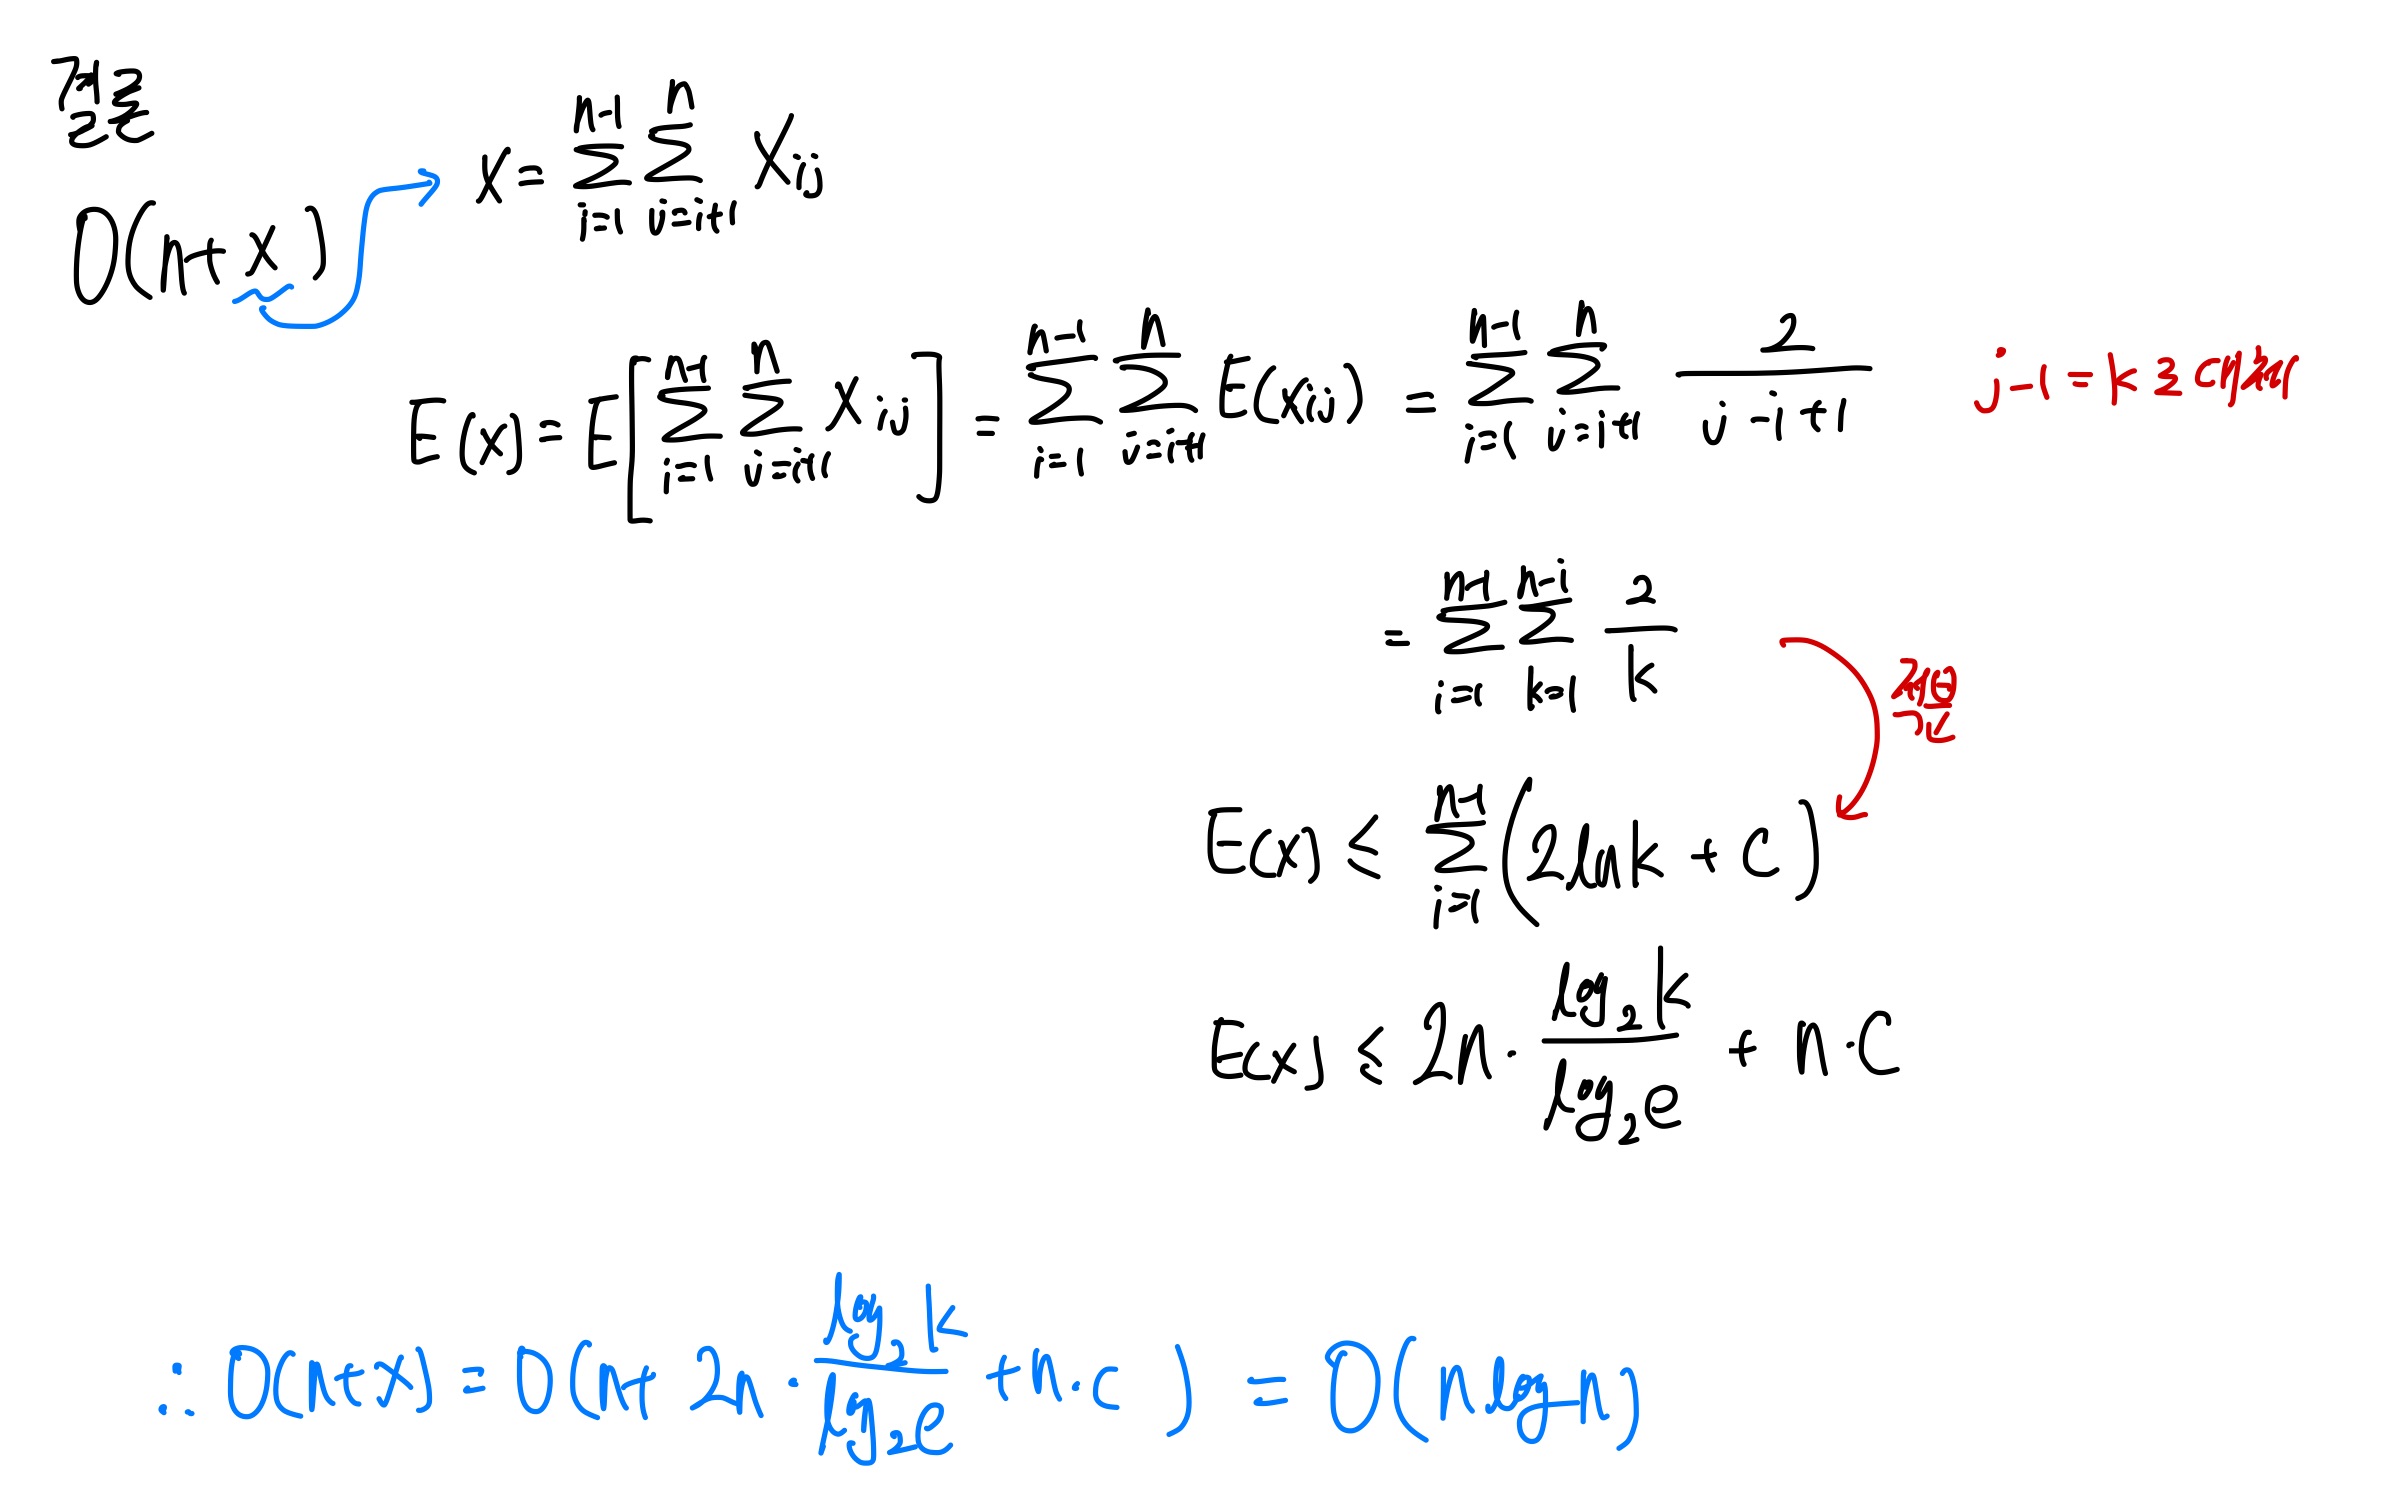 결론
O(n+X)
X = \sum_{i=1}^{n-1} \sum_{j=i+1}^{n} X_{ij}
E(X) = E[\sum_{i=1}^{n-1} \sum_{j=i+1}^{n} X_{ij}] = \sum_{i=1}^{n-1} \sum_{j=i+1}^{n} E(X_{ij}) = \sum_{i=1}^{n-1} \sum_{j=i+1}^{n} \frac{2}{j-i+1}
j-i=k로
= \sum_{i=1}^{n-1} \sum_{k=1}^{n-i} \frac{2}{k}
E(X) ≤ \sum_{i=1}^{n-1} (2lnk + C)
E(X) ≤ 2n · \frac{log_2 k}{log_2 e} + n·C
∴ O(n+X) = O(n+ 2n · \frac{log_2 k}{log_2 e} + n·c) = O(nlogn)